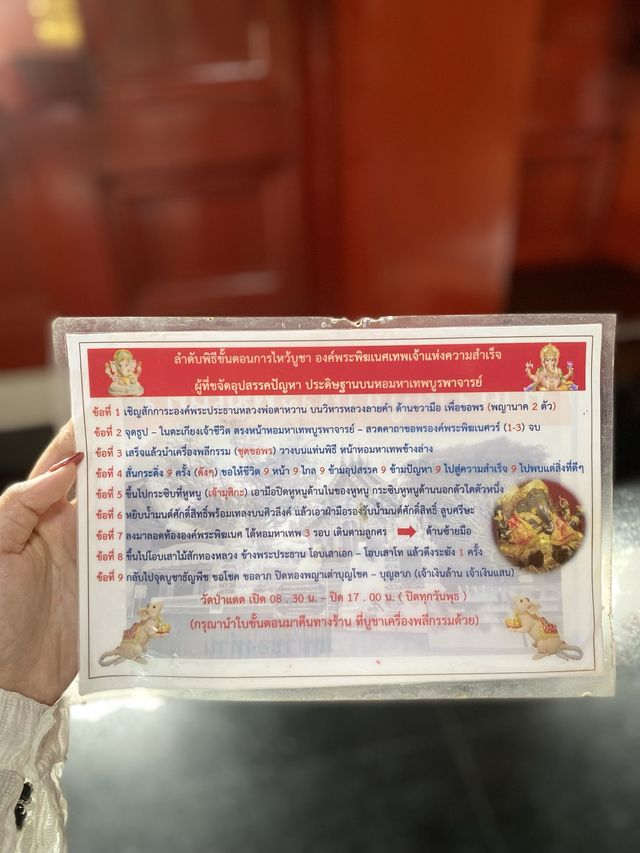 ลำดับพิธีขั้นตอนการไหว้บูชา องค์พระพิฆเนศเทพเจ้าแห่งความสำเร็จ
ผู้ที่ขจัดอุปสรรคปัญหา ประดิษฐานบนหอมหาเทพบูรพาจารย์
ข้อที่ 1 เชิญสักการะองค์พระประธานหลวงพ่อตาหวาน บนวิหารหลวงลายคำ ด้านขวามือ เพื่อขอพร (พญานาค 2 ตัว)
ข้อที่ 2 จุดธูป – ในตะเกียงเจ้าชีวิต ตรงหน้าหอมหาเทพบูรพาจารย์ - สวดคาถาขอพรองค์พระพิฆเนศวร์ (1-3) จบ
ข้อที่ 3 เสร็จแล้วนำเครื่องพลีกรรม (ชุดขอพร) วางบนแท่นพิธี หน้าหอมหาเทพข้างล่าง
ข้อที่ 4 สั่นกระดิ่ง 9 ครั้ง (ดังๆ) ขอให้ชีวิต 9 หน้า 9 ไกล 9 ข้ามอุปสรรค 9 ข้ามปัญหา 9 ไปสู่ความสำเร็จ 9 ไปพบแต่สิ่งที่ดีๆ
ข้อที่ 5 ขึ้นไปกระซิบที่หูหนู (เจ้ามุสิกะ) เอามือปิดหูหนูด้านในของหูหนู กระซิบหูหนูด้านนอกตัวใดตัวหนึ่ง
ข้อที่ 6 หยิบน้ำมนต์ศักดิ์สิทธิ์พร้อมเทลงบนศิวลึงค์ แล้วเอาฝ่ามือรองรับน้ำมนต์ศักดิ์สิทธิ์ ลูบศรีษะ
ข้อที่ 7 ลงมาลอดท้ององค์พระพิฆเนศ ใต้หอมหาเทพ 3 รอบ เดินตามลูกศร ➡ ด้านซ้ายมือ
ข้อที่ 8 ขึ้นไปโอบเสาไม้สักทองหลวง ข้างพระประธาน โอบเสาเอก – โอบเสาโท แล้วตีระฆัง 1 ครั้ง
ข้อที่ 9 กลับไปจุดบูชาธัญพืช ขอโชค ขอลาภ ปิดทองพญาเต่าบุญโชค – บุญลาภ (เจ้าเงินล้าน เจ้าเงินแสน)
วัดป่าแดด เปิด 08 . 30 น. – ปิด 17 . 00 น. ( ปิดทุกวันพุธ )
(กรุณานำใบขั้นตอนมาคืนทางร้าน ที่บูชาเครื่องพลีกรรมด้วย)